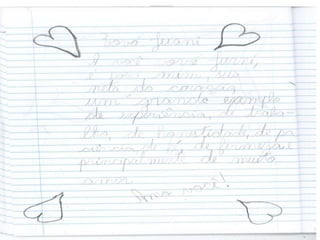 Vovó Jurani
A você avó Jurani,
é para mim, sua
neta do coração,
um grande exemplo
de experiência, de traba-
lho, de honestidade, de pa
ciência, de fé, de firmeza e
principalmente de muito
amor.
Amo você!